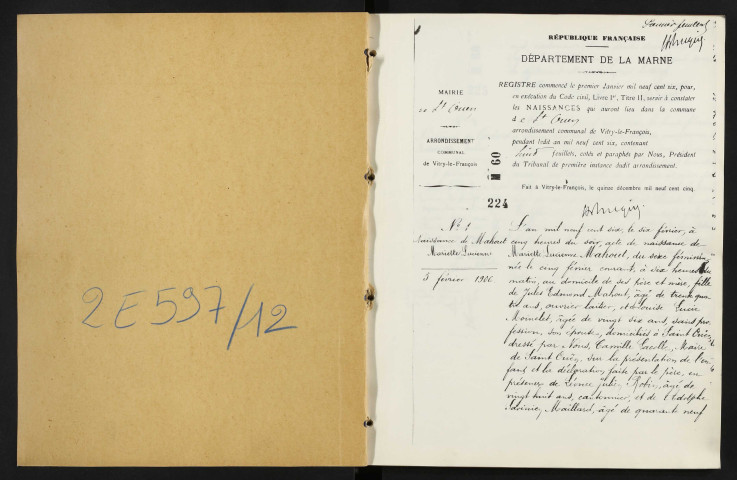 2 E 597/12
Premier feuillet
RÉPUBLIQUE FRANÇAISE
DÉPARTEMENT DE LA MARNE
MAIRIE
de St Ouen
ARRONDISSEMENT
COMMUNAL
de Vitry-le-François
REGISTRE commencé le premier Janvier mil neuf cent six, pour,
en exécution du Code civil, Livre Ier, Titre II, servir à constater
les NAISSANCES qui auront lieu dans la commune
de St Ouen
arrondissement communal de Vitry-le-François,
pendant ledit an mil neuf cent six, contenant
huit feuillets, cotés et paraphés par Nous, Président
du Tribunal de première instance dudit arrondissement.
Fait à Vitry-le-François, le quinze décembre mil neuf cent cinq.
M 60
224
No 1
Naissance de Mahout
Marielle Lucienne
5 février 1906
L'an mil neuf cent six, le six février, à
cinq heures du soir, acte de naissance de
Marielle Lucienne Mahout, du sexe féminin,
née le cinq février courant, à six heures du
matin, au domicile de ses père et mère, fille
de Jules Edmond Mahout, âgé de trente quatre
ans, ouvrier laitier, et de Louise Lucie
Moinelet, âgée de vingt six ans, sans pro
fession, son épouse, domiciliés à Saint Ouen,
dressé par Nous, Camille Maire
de Saint Ouen, sur la présentation de l'en
fant et la déclaration faite par le père, en
présence de Léonce Jules Robin, âgé de
vingt huit ans, cantonnier, et de Adolphe
Maillard, âgé de quarante neuf